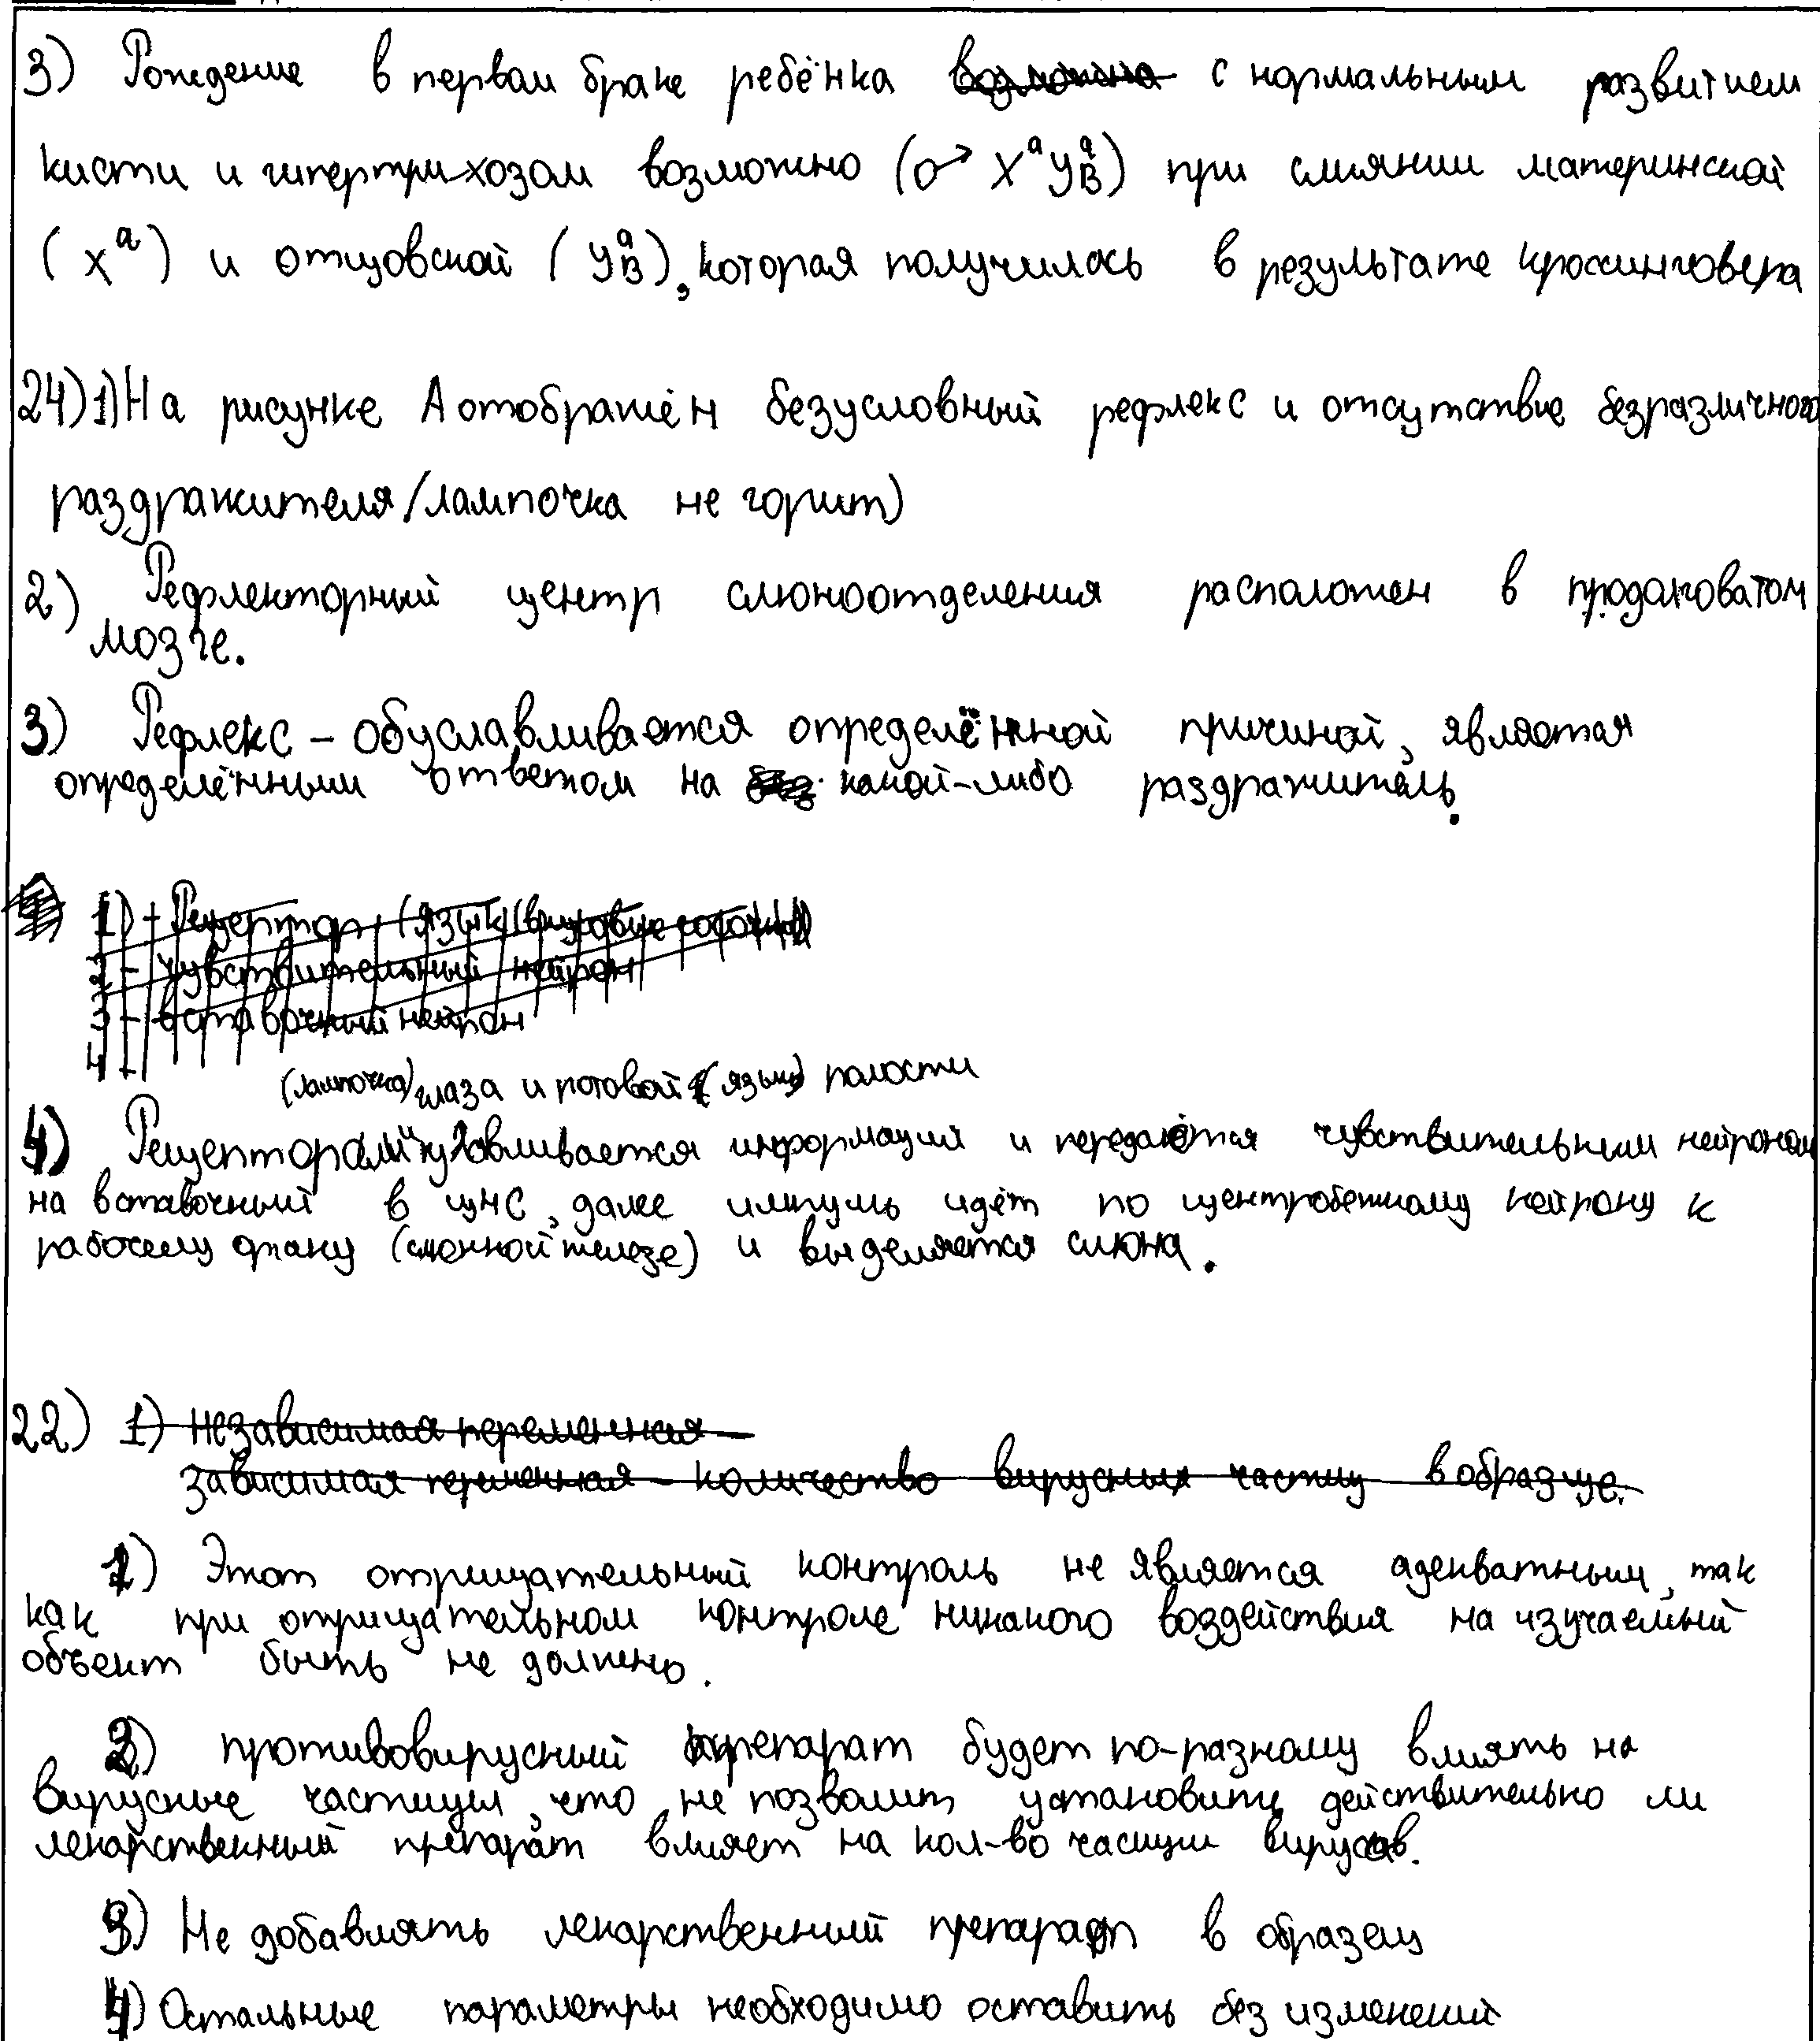 3) Рождение в первом браке ребёнка с нормальным развитием
кисти и гипертрихозом возможно (♂ XᵃYᵃB) при слиянии материнской
(xᵃ) и отцовской (YᵃB), которая получилась в результате кроссинговера
24) 1) На рисунке А отображён безусловный рефлекс и отсутствие безразличного
раздражителя (лампочка не горит)
2) Рефлекторный центр слюноотделения расположен в продолговатом
мозге.
3) Рефлекс – обуславливается определённой причиной, является
определёнными ответом на какой-либо раздражитель.
1) - Рецептор (язык (вкусовые сосочки))
2 - чувствительный нейрон
3 - вставочный нейрон
4 -
(лампочка) глаза и ротовой (язык) полости
4) Рецепторами улавливается информация и передаются чувствительным нейроном
на вставочный в ЦНС, далее импульс идёт по центробежному нейрону к
рабочему органу (слюнной железе) и выделяется слюна.
22) 1) Независимая переменная –
Зависимая переменная – количество вирусных частиц в образце.
1) Этот отрицательный контроль не является адекватным, так
как при отрицательном контроле никакого воздействия на изучаемый
объект быть не должно.
2) противовирусный препарат будет по-разному влиять на
вирусные частицы, что не позволит установить действительно ли
лекарственный препарат влияет на кол-во часиции вирусов.
3) Не добавлять лекарственный препарат в образец
4) Остальные параметры необходимо оставить без изменений